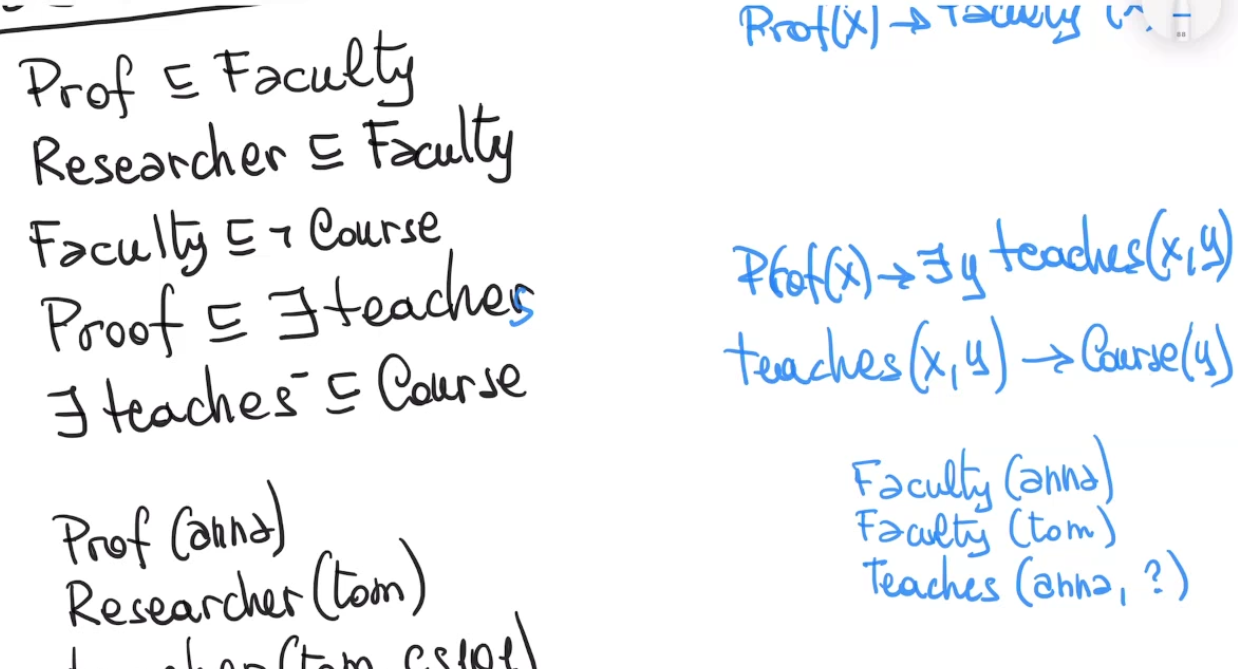 Prof ⊑ Faculty
Researcher ⊑ Faculty
Faculty ⊑ ¬ Course
Proof ⊑ ∃ teaches
∃ teaches⁻ ⊑ Course
Prof (anna)
Researcher (tom)
(tom, cs101)
Prof(x) → Faculty
Prof(x) → ∃ y teaches(x,y)
teaches(x,y) → Course(y)
Faculty (anna)
Faculty (tom)
Teaches (anna, ?)